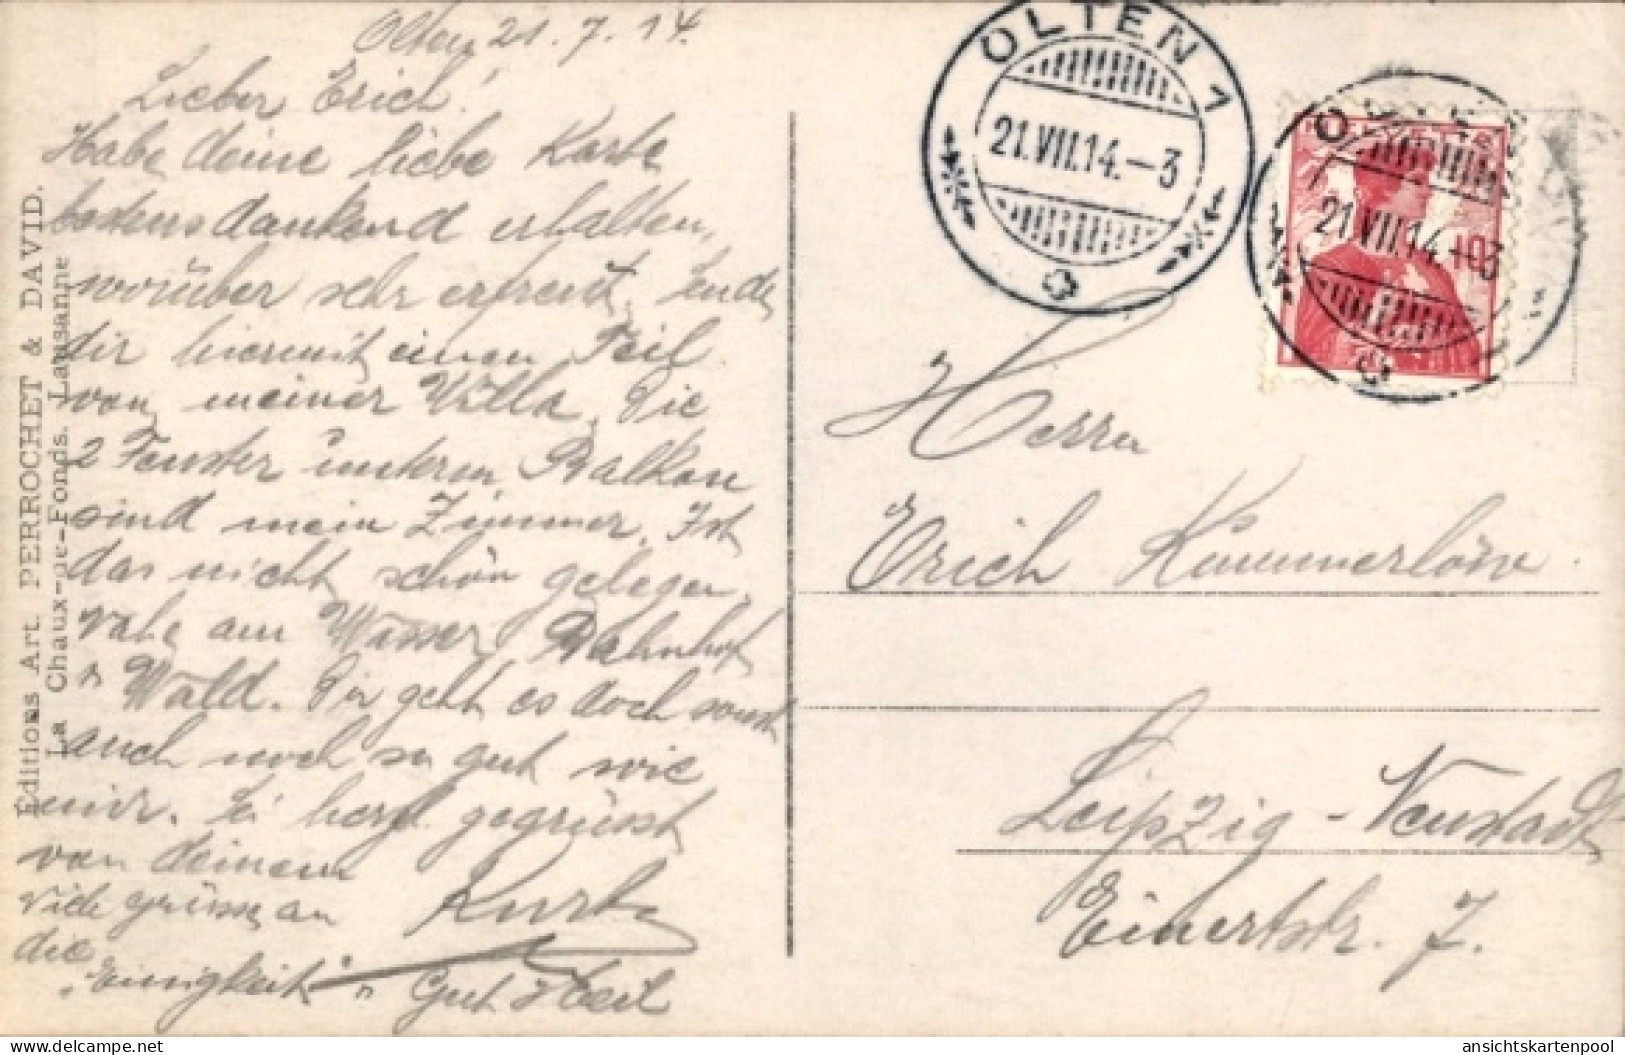 Olten, 21. 7. 14.
Lieber Erich!
Habe deine liebe Karte
bestens dankend erhalten,
worüber sehr erfreut. Sende
dir hiermit einen Teil
von meiner Villa. Die
2 Fenster unterm Balkon
sind mein Zimmer. Ist
das nicht schön gelegen,
nahe am Wasser, Bahnhof
Wald. Dir geht es doch sonst
auch noch so gut wie
mir. Sei herzl. gegrüsst
von deinem
Kurt
Viele Grüsse an
die
"Einigkeit" Gut Heil
Editions Art. PERROCHET & DAVID.
La Chaux-de-Fonds. Lausanne
OLTEN 1
21.VII.14.-3
OLTEN
21.VII.14.-3
10
Herrn
Erich Kümmerlöw
Leipzig-Neustadt
Einertstr. 7.
delcampe.net
ansichtskartenpool